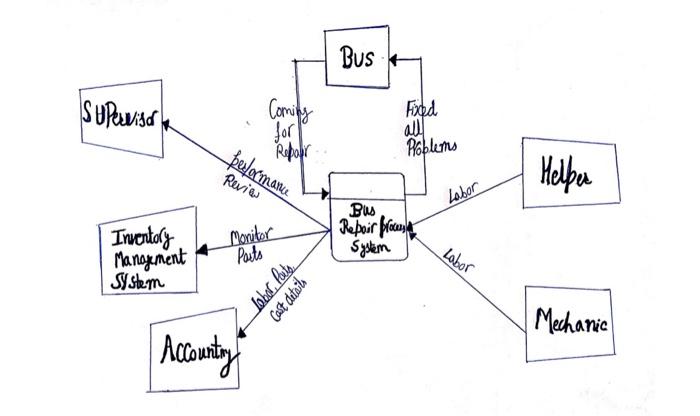 Bus
Supervisor
Coming
for
Repair
Fixed
all
Problems
Performance
Review
Helper
Labor
Bus
Repair process
System
Inventory
Management
System
Monitor
Parts
Labor
Labor, Parts
Cost details
Mechanic
Accounting